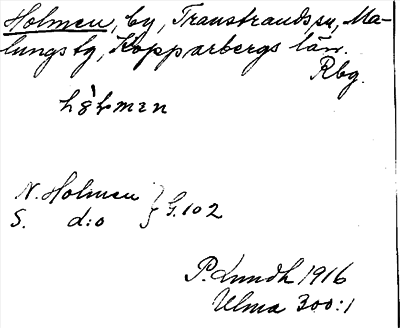 Holmen, by, Transtrands sn, Ma-
lungs tg, Kopparbergs län.
Rbg.
N. Holmen } G. 102
S. d:o
P. Lundh 1916
Ulma 300:1